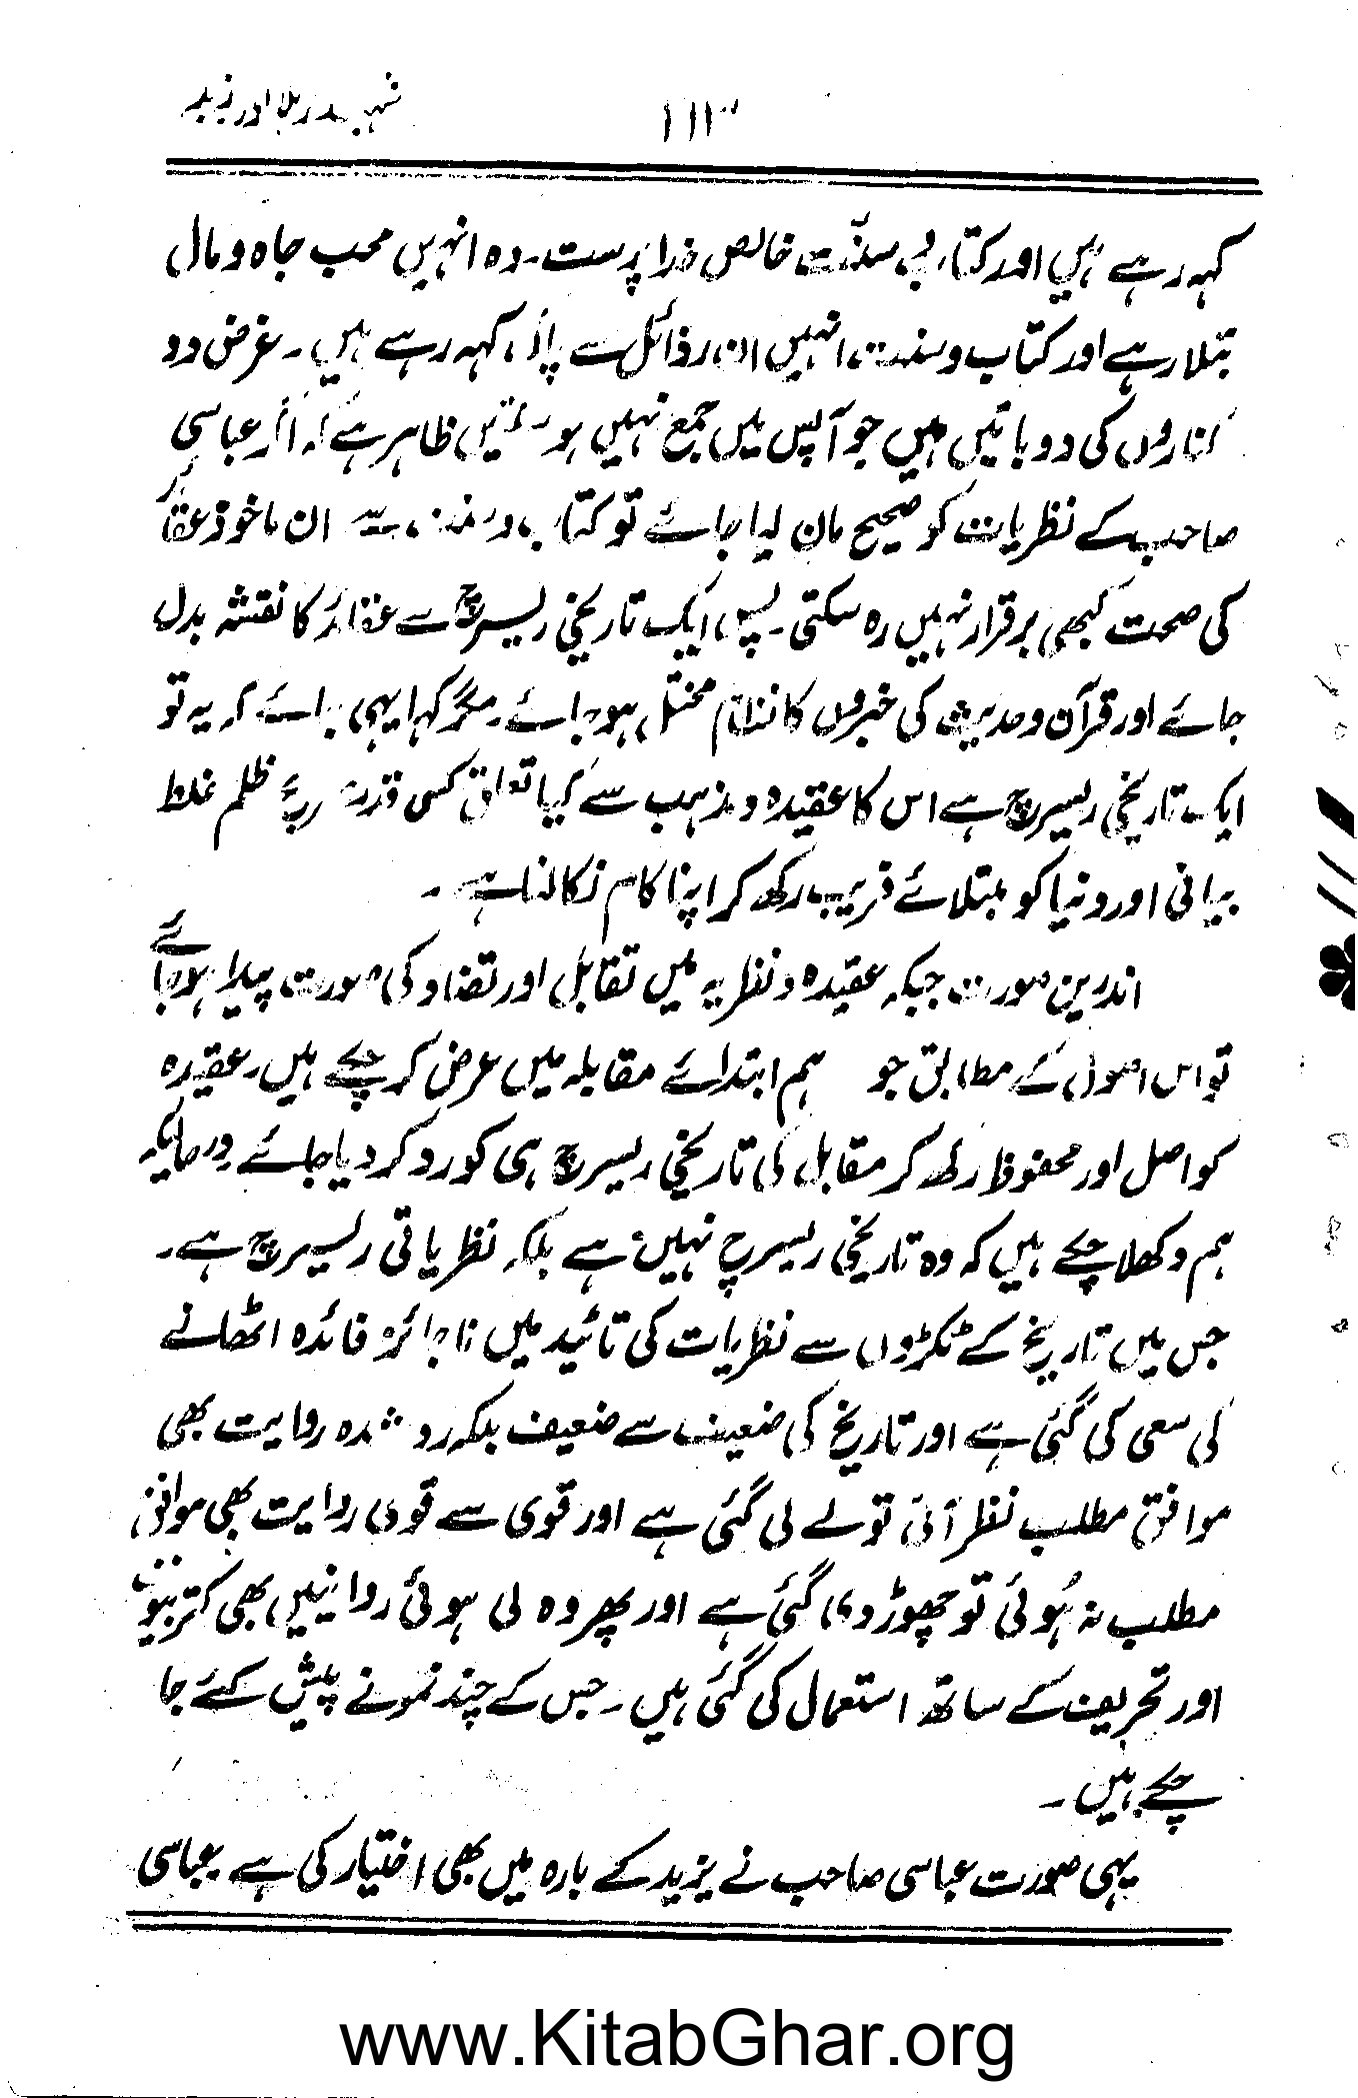 ۱۱۳ شہید کربلا اور یزید
کہہ رہے ہیں اور کتاب و سنّت خالص خدا پرست۔ وہ انہیں محب جاہ و مال
بتلا رہے اور کتاب و سنت انہیں ان رذائل سے پاک کہہ رہے ہیں۔ غرض دو
کناروں کی دو باتیں ہیں جو آپس میں جمع نہیں ہو سکتیں ظاہر ہے کہ اگر عباسی
صاحب کے نظریات کو صحیح مان لیا جائے تو کتاب و سنت سے ان ماخوذ عقائد
کی صحت کبھی برقرار نہیں رہ سکتی۔ پس ایک تاریخی ریسرچ سے عقائد کا نقشہ بدل
جائے اور قرآن و حدیث کی خبروں کا نظام مختل ہو جائے۔ مگر کہا یہی جائے کہ یہ تو
ایک تاریخی ریسرچ ہے اس کا عقیدہ و مذہب سے کیا تعلق کس قدر ظلم غلط
بیانی اور دنیا کو مبتلائے فریب رکھ کر اپنا کام نکالنا ہے۔
اندرین صورت جبکہ عقیدہ و نظریہ میں تقابل اور تضاد کی صورت پیدا ہو جائے
تو اس اصول کے مطابق جو ہم ابتدائے مقابلہ میں عرض کر چکے ہیں۔ عقیدہ
کو اصل اور محفوظ رکھ کر مقابل کی تاریخی ریسرچ ہی کو رد کر دیا جائے درحالیکہ
ہم دکھلا چکے ہیں کہ وہ تاریخی ریسرچ نہیں ہے بلکہ نظریاتی ریسرچ ہے۔
جس میں تاریخ کے ٹکڑوں سے نظریات کی تائید میں ناجائز فائدہ اٹھانے
کی سعی کی گئی ہے اور تاریخ کی ضعیف سے ضعیف بلکہ رد شدہ روایت بھی
موافق مطلب نظر آئی تو لے لی گئی ہے اور قوی سے قوی روایت بھی موافق
مطلب نہ ہُوئی تو چھوڑ دی گئی ہے اور پھر وہ لی ہوئی روایتیں بھی کتربیونت
اور تحریف کے ساتھ استعمال کی گئی ہیں۔ جس کے چند نمونے پیش کئے جا
چکے ہیں۔
یہی صورت عباسی صاحب نے یزید کے بارہ میں بھی اختیار کی ہے عباسی
www.KitabGhar.org